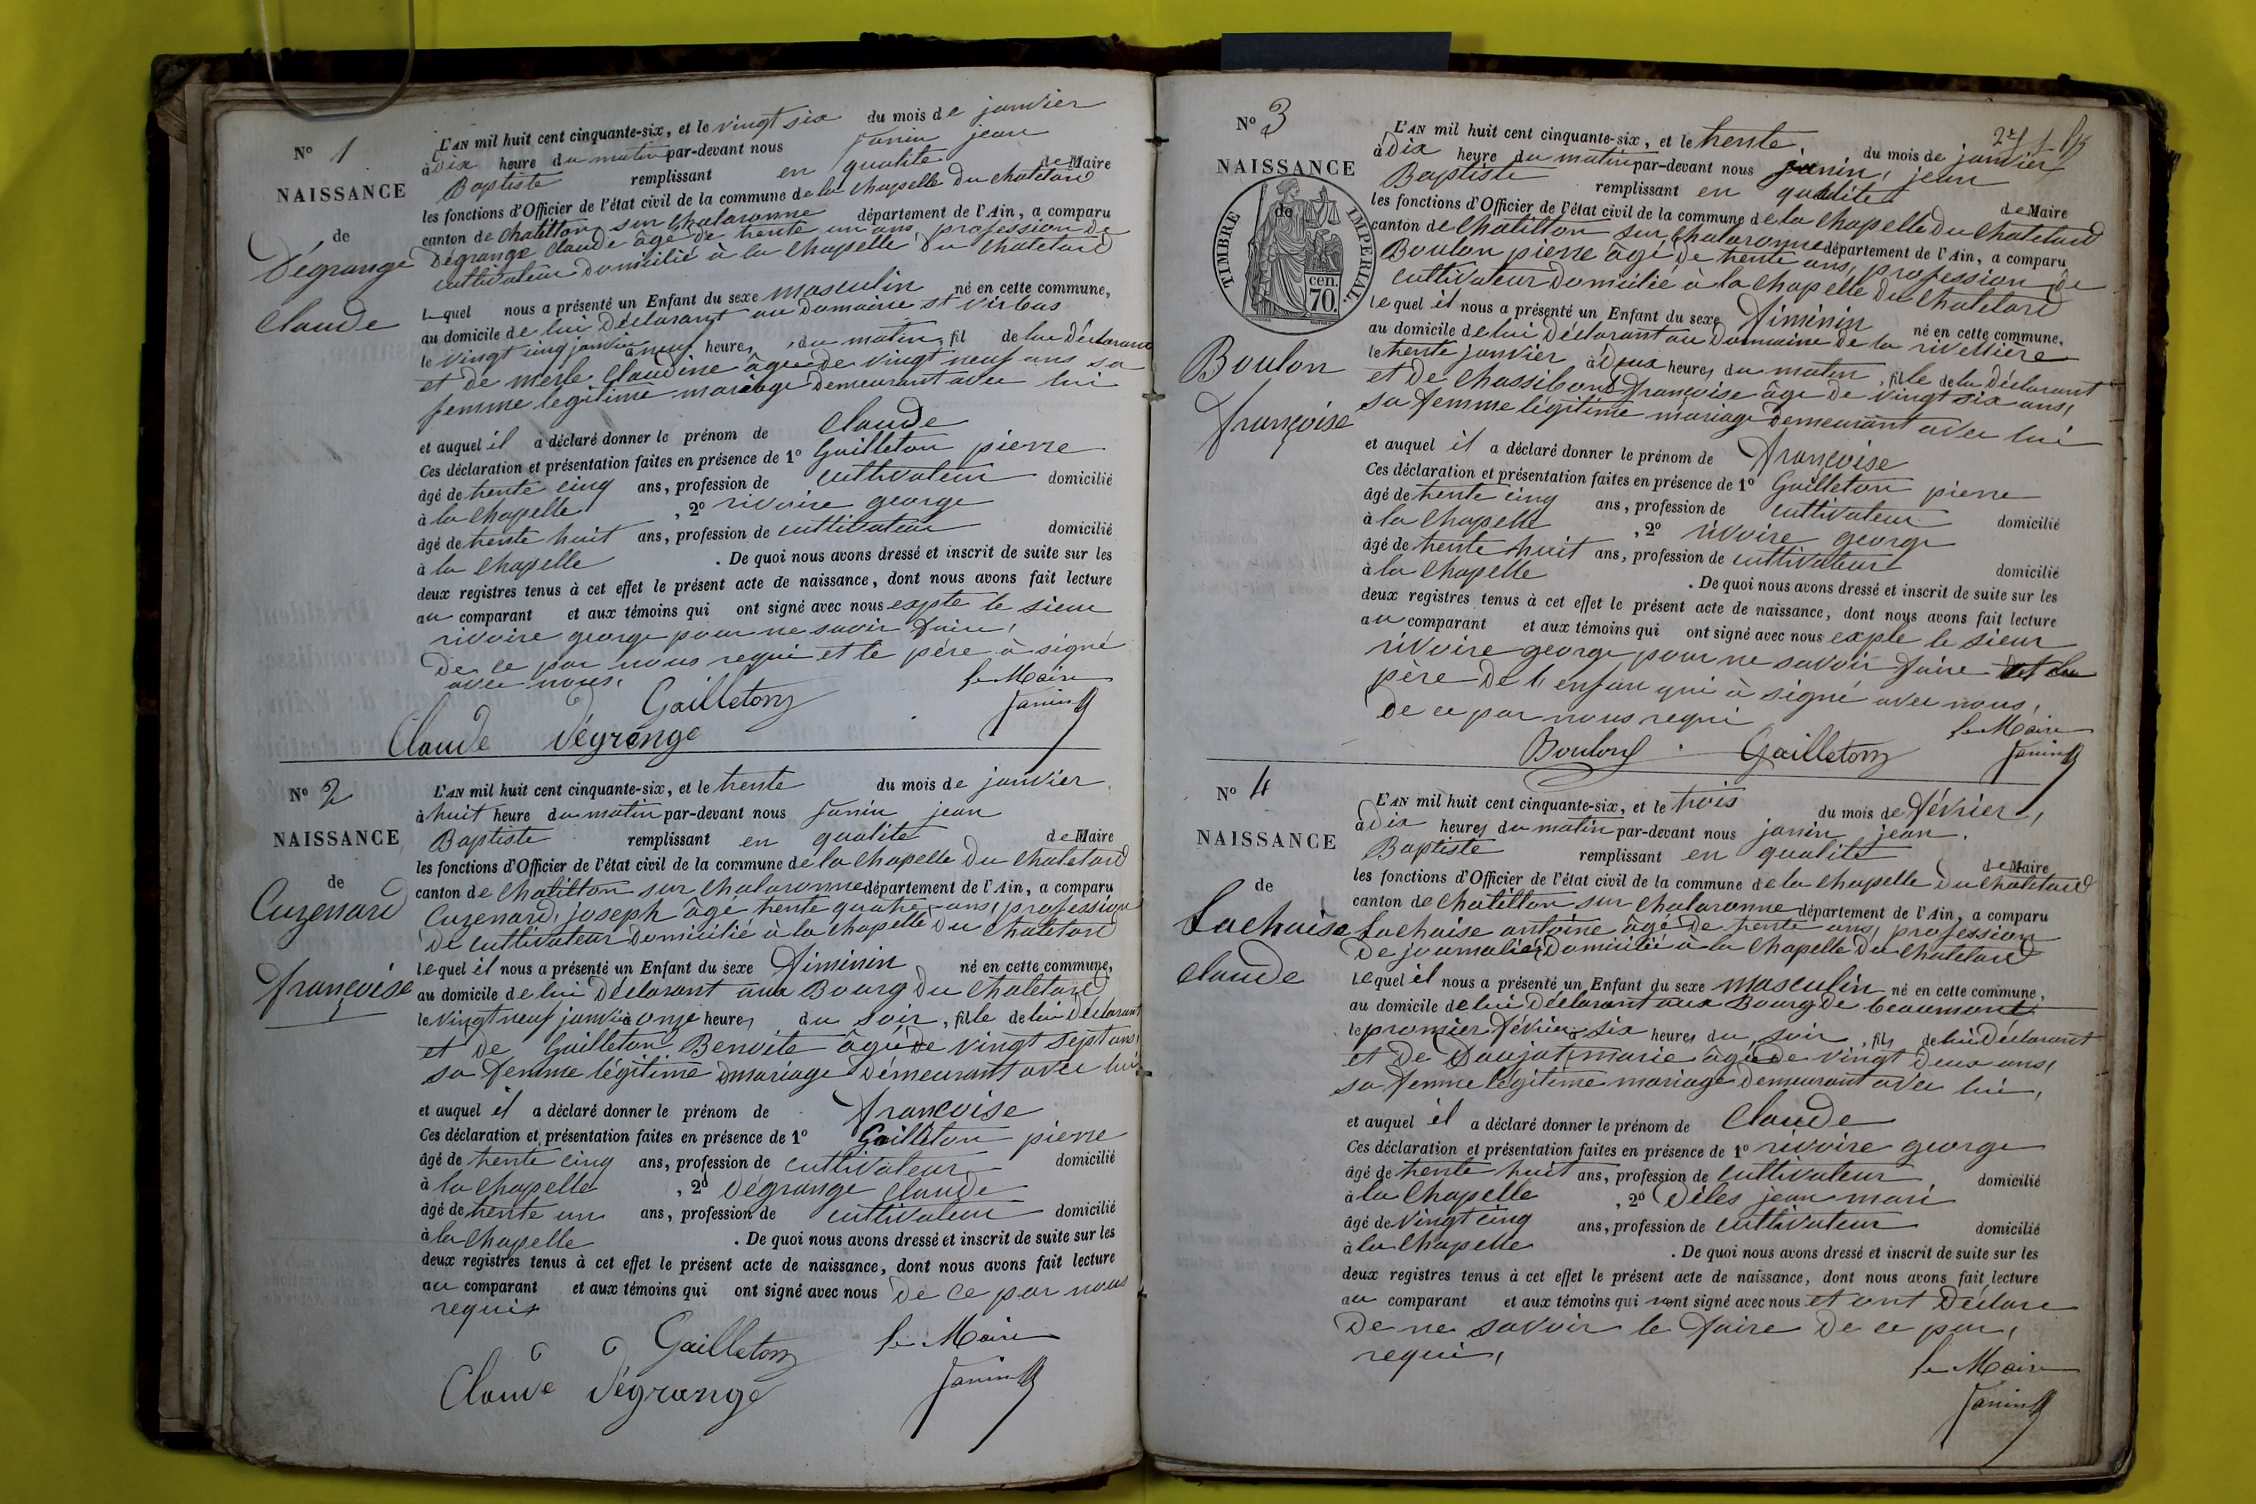 N° 1
NAISSANCE
de
Dégrange
Claude
L'AN mil huit cent cinquante-six, et le vingt six du mois de janvier
à Dix heure du matin par-devant nous Janin jean
Baptiste remplissant en qualité de Maire
les fonctions d'Officier de l'état civil de la commune de la Chapelle du Chatelard
canton de Chatillon sur Chalaronne département de l'Ain, a comparu
Dégrange Claude âgé de trente un ans, profession de
cultivateur domicilié à la Chapelle du Chatelard
Lequel nous a présenté un Enfant du sexe masculin né en cette commune,
au domicile de lui Déclarant au Domaine st Virbas
le vingt cinq janvier à neuf heures, du matin, fil de lui Déclarant
et de merle Claudine âgée de vingt neuf ans sa
femme légitime mariage demeurant avec lui
et auquel il a déclaré donner le prénom de Claude
Ces déclaration et présentation faites en présence de 1° Gailleton pierre
âgé de trente cinq ans, profession de cultivateur domicilié
à la Chapelle, 2° rivoire george
âgé de trente huit ans, profession de cultivateur domicilié
à la Chapelle. De quoi nous avons dressé et inscrit de suite sur les
deux registres tenus à cet effet le présent acte de naissance, dont nous avons fait lecture
au comparant et aux témoins qui ont signé avec nous expte le sieur
rivoire george pour ne savoir faire,
De ce par nous requi et le père à signé
avec nous,
Gailleton le Maire
Claude Dégrange Janin
N° 2
NAISSANCE
de
Cuzenard
françoise
L'AN mil huit cent cinquante-six, et le trente du mois de janvier
à huit heure du matin par-devant nous Janin jean
Baptiste remplissant en qualité de Maire
les fonctions d'Officier de l'état civil de la commune de la Chapelle du Chatelard
canton de Chatillon sur Chalaronne département de l'Ain, a comparu
Cuzenard, joseph âgé trente quatre ans, profession
De cultivateur Domicilié à la Chapelle du Chatelard
Lequel il nous a présenté un Enfant du sexe féminin né en cette commune,
au domicile de lui Déclarant au Bourg du Chatelard
le vingt neuf janvier à onze heures du soir, fille de lui Déclarant
et de Gailleton Benoite âgée de vingt sept ans,
sa femme légitime mariage Démeurant avec lui
et auquel il a déclaré donner le prénom de françoise
Ces déclaration et présentation faites en présence de 1° Gailleton pierre
âgé de trente cinq ans, profession de cultivateur domicilié
à la Chapelle, 2° Dégrange Claude
âgé de trente un ans, profession de cultivateur domicilié
à la Chapelle. De quoi nous avons dressé et inscrit de suite sur les
deux registres tenus à cet effet le présent acte de naissance, dont nous avons fait lecture
au comparant et aux témoins qui ont signé avec nous De ce par nous
requis
Gailleton le Maire
Claude Dégrange Janin
N° 3
NAISSANCE
de
TIMBRE IMPERIAL
cen.
70.
Boulon
françoise
L'AN mil huit cent cinquante-six, et le trente, du mois de janvier
à Dix heure du matin par-devant nous janin, jean
Baptiste remplissant en qualité de Maire
les fonctions d'Officier de l'état civil de la commune de la Chapelle du Chatelard
canton de Chatillon sur Chalaronne département de l'Ain, a comparu
Boulon pierre âgé de trente ans, profession de
cultivateur Domicilié à la Chapelle du Chatelard
Lequel il nous a présenté un Enfant du sexe féminin né en cette commune,
au domicile de lui Déclarant au Domaine de la rivellière
le trente janvier à Deux heures du matin, fille de lu Déclarant
et de Chassibond françoise âge de vingt six ans,
sa femme légitime mariage Demeurant avec lui
et auquel il a déclaré donner le prénom de françoise
Ces déclaration et présentation faites en présence de 1° Gailleton pierre
âgé de trente cinq ans, profession de cultivateur domicilié
à la Chapelle, 2° rivoire george
âgé de trente huit ans, profession de cultivateur domicilié
à la Chapelle. De quoi nous avons dressé et inscrit de suite sur les
deux registres tenus à cet effet le présent acte de naissance, dont nous avons fait lecture
au comparant et aux témoins qui ont signé avec nous expte le sieur
rivoire george pour ne savoir faire et le
père De l'enfan qui à signé avec nous,
De ce par nous requi le Maire
Boulon Gailleton Janin
N° 4
NAISSANCE
de
Lachaise
Claude
L'AN mil huit cent cinquante-six, et le trois du mois de février,
à Dix heures du matin par-devant nous janin jean
Baptiste remplissant en qualité de Maire
les fonctions d'Officier de l'état civil de la commune de la Chapelle du Chatelard
canton de Chatillon sur Chalaronne département de l'Ain, a comparu
Lachaise antoine âgé de trente ans, profession
De journalier Domicilié à la Chapelle du Chatelard
Lequel il nous a présenté un Enfant du sexe masculin né en cette commune,
au domicile de lui Déclarant aux Bourg de beaumont
le premier février à six heures du soir, fils de lui Déclarant
et de Daujat marie âgée de vingt Deux ans,
sa femme légitime mariage demeurant avec lui,
et auquel il a déclaré donner le prénom de Claude
Ces déclaration et présentation faites en présence de 1° rivoire george
âgé de trente huit ans, profession de cultivateur domicilié
à la Chapelle, 2° Déles jean mari
âgé de vingt cinq ans, profession de cultivateur domicilié
à la Chapelle. De quoi nous avons dressé et inscrit de suite sur les
deux registres tenus à cet effet le présent acte de naissance, dont nous avons fait lecture
au comparant et aux témoins qui nont signé avec nous et ont Déclare
De ne savoir le faire De ce par,
requi,
le Maire
Janin